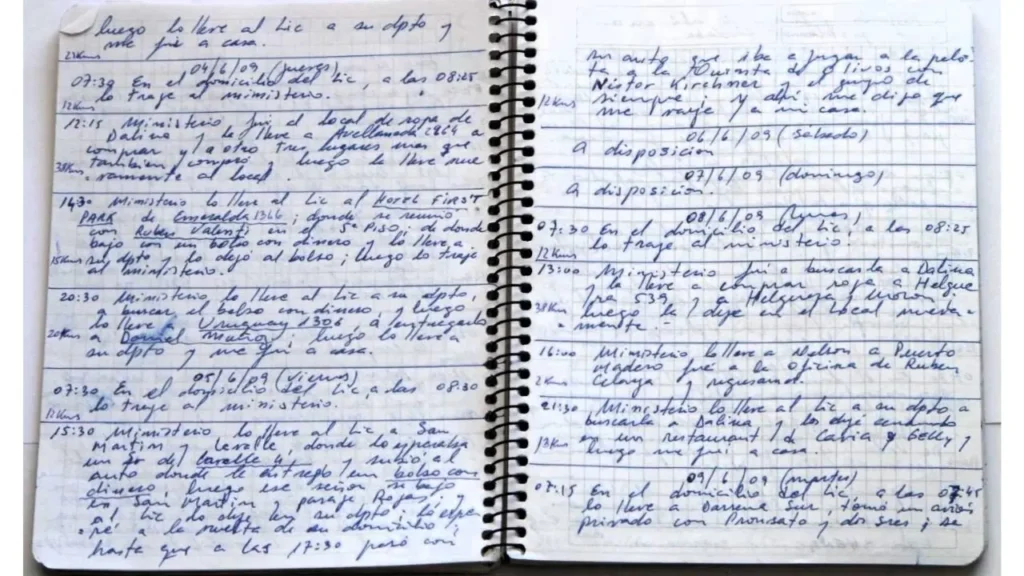 luego lo lleve al Lic a su dpto y
me fui a casa.
23Kms
04/6/09 (jueves)
07:30 En el domicilio del Lic, a las 08:25
lo traje al ministerio.
12Kms
12:15 Ministerio fui el local de ropa de
Dalina y la lleve a Avellaneda 2964 a
comprar y a otro tres lugares mas que
tambien compró y luego la lleve nue
38Kms -vamente al local.
14:30 Ministerio lo lleve al Lic al HOTEL FIRST
PARK de Esmeralda 1366; donde se reunió
con Ruben Valenti en el 5º PISO; de donde
bajo con un bolso con dinero y lo lleve a
15Kms su dpto y lo dejó al bolso; luego lo traje
al ministerio.
20:30 Ministerio lo lleve al Lic a su dpto,
a buscar el bolso con dinero, y luego
lo lleve a Uruguay 1306, a entregarlo
20Km a Daniel Muñoz; luego lo lleve a
su dpto y me fui a casa.
05/6/09 (viernes)
07:30 En el domicilio del Lic, a las 08:30
lo traje al ministerio.
12Kms
15:30 Ministerio lo lleve al Lic a San
Martin y Lavalle, donde lo esperaba
un Sr de Lavalle y subió al
auto donde le entregó un bolso con
dinero, luego ese señor se bajo
en San Martin y pasaje Rojas; y
al Lic lo deje en su dpto; lo espe
-ré a la vuelta de su domicilio;
hasta que a las 17:30 pasó con
su auto que iba a jugar a la pelo
ta a la Quinta de Olivos con
Néstor Kirchner y el grupo de
12Kms siempre, y ahi me dijo que
me vaya y a mi casa.
06/6/09 (sabado)
A disposicion
07/6/09 (domingo)
A disposicion.
08/6/09 (lunes)
07:30 En el domicilio del Lic, a las 08:25
lo traje al ministerio.
12Kms
13:00 Ministerio fui a buscarla a Dalina
y la lleve a comprar ropa a Helgue
ra 539, y a Helguera y Moron;
38Kms luego la deje en el local nueva-
-mente.-
16:00 Ministerio lo lleve a Nelson a Puerto
Madero fué a la oficina de Ruben
2Kms y regresamos.
21:30 Ministerio lo lleve al Lic a su dpto a
buscarla a Dalina y los deje cenando
13Kms en un restaurant de Cabia y Gelly y
luego me fui a casa.
09/6/09 (martes)
07:15 En el domicilio del Lic, a las 07:45
lo lleve a Darsena Sur, tomó un avión
privado con y dos sres; se